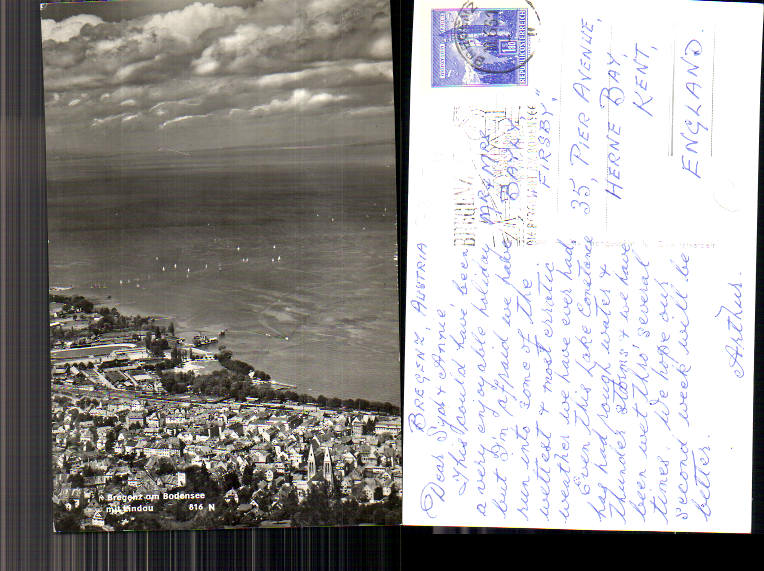 Bregenz am Bodensee
mit Lindau 816 N
BREGENZ, AUSTRIA
Dear Syd & Annie,
This should have been
a very enjoyable holiday
but I'm afraid we have
run into some of the
wettest & most erratic
weather we have ever had.
Even this Lake Constance
has had rough water &
thunder storms & we have
been wet thro' several
times. We hope our
second week will be
better.
Arthur.
REPUBLIK ÖSTERREICH
BREGENZ
MR & MRS
"FIRSBY,"
35, PIER AVENUE,
HERNE BAY,
KENT,
ENGLAND.